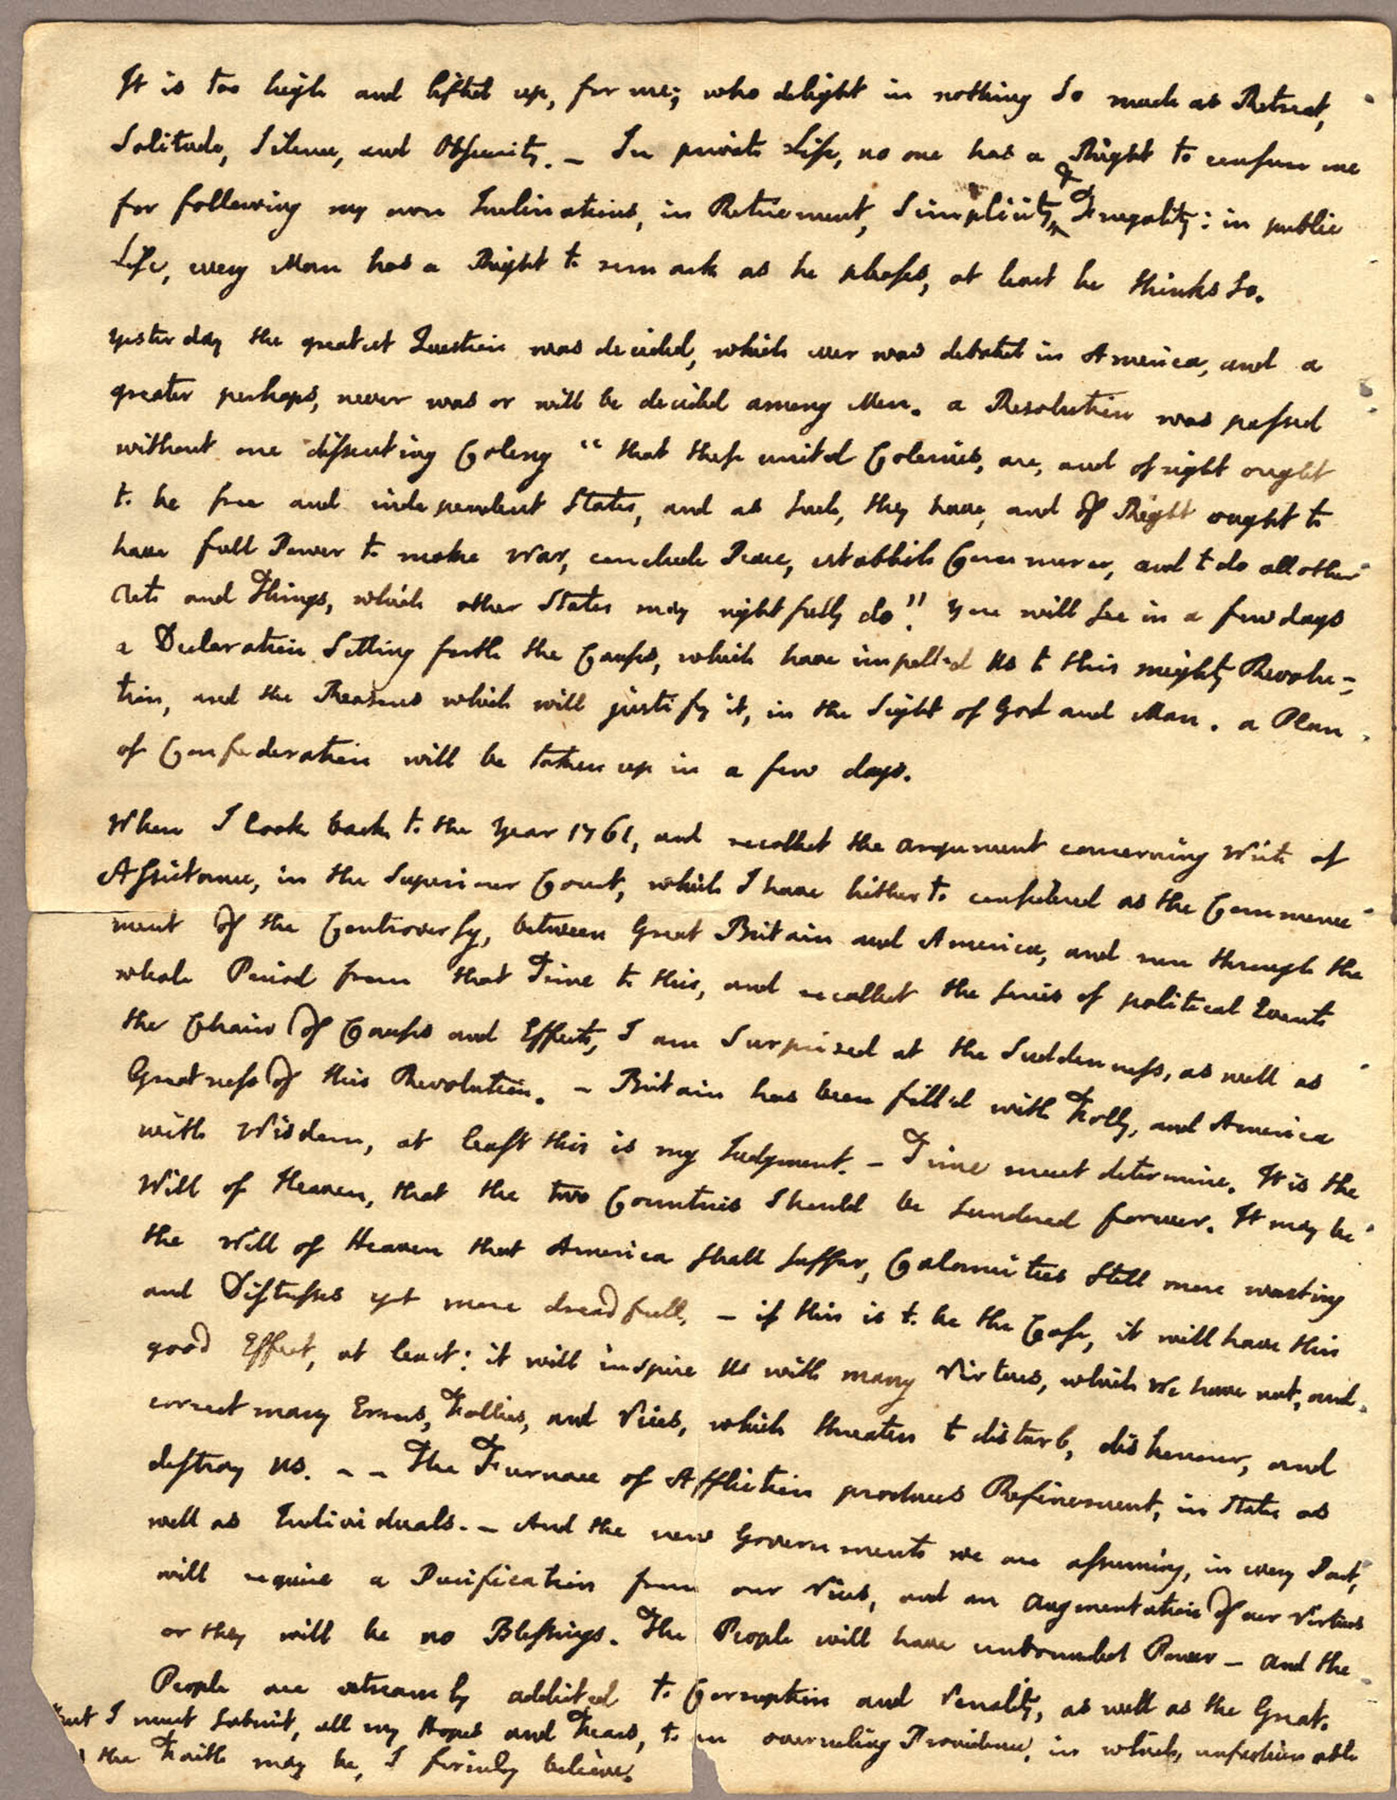 It is too high and lifted up, for me; who delight in nothing so much as Retreat,
Solitude, Silence, and Obscurity. — In private Life, no one has a Right to censure me
for following my own Inclinations, in Retirement, Simplicity, & Frugality: in public
Life, every Man has a Right to remark as he pleases, at least he thinks so.
Yesterday the greatest Question was decided, which ever was debated in America, and a
greater perhaps, never was or will be decided among Men. a Resolution was passed
without one dissenting Colony “that these united Colonies, are, and of right ought
to be free and independent States, and as such, they have, and of Right ought to
have full Power to make War, conclude Peace, establish Commerce, and to do all other
Acts and Things, which other States may rightfully do”. You will see in a few days
a Declaration setting forth the Causes, which have impelled Us to this mighty Revolu-
tion, and the Reasons which will justify it, in the Sight of God and Man. a Plan
of Confederation will be taken up in a few days.
When I look back to the Year 1761, and recollect the Argument concerning Writs of
Assistance, in the Superiour Court, which I have hitherto considered as the Commence
ment of the Controversy, between Great Britain and America, and run through the
whole Period from that Time to this, and recollect the series of political Events
the Chain of Causes and Effects, I am surprized at the Suddenness, as well as
Greatness of this Revolution. — Britain has been fill'd with Folly, and America
with Wisdom, at least this is my Judgment. — Time must determine. It is the
Will of Heaven, that the two Countries should be sundered forever. It may be
the Will of Heaven that America shall suffer, Calamities still more wasting
and Distresses yet more dreadfull. — if this is to be the Case, it will have this
good Effect, at least: it will inspire Us with many Virtues, which We have not, and
correct many Errors, Follies, and Vices, which threaten to disturb, dishonour, and
destroy Us. — — The Furnace of Affliction produces Refinement, in States as
well as Individuals. — And the new Governments we are assuming, in every Part,
will require a Purification from our Vices, and an Augmentation of our Virtues
or they will be no Blessings. The People will have unbounded Power — and the
People are extreamly addicted to Corruption and Venality, as well as the Great.
But I must submit, all my Hopes and Fears, to an overruling Providence, in which, unfashionable
the Faith may be, I firmly believe.